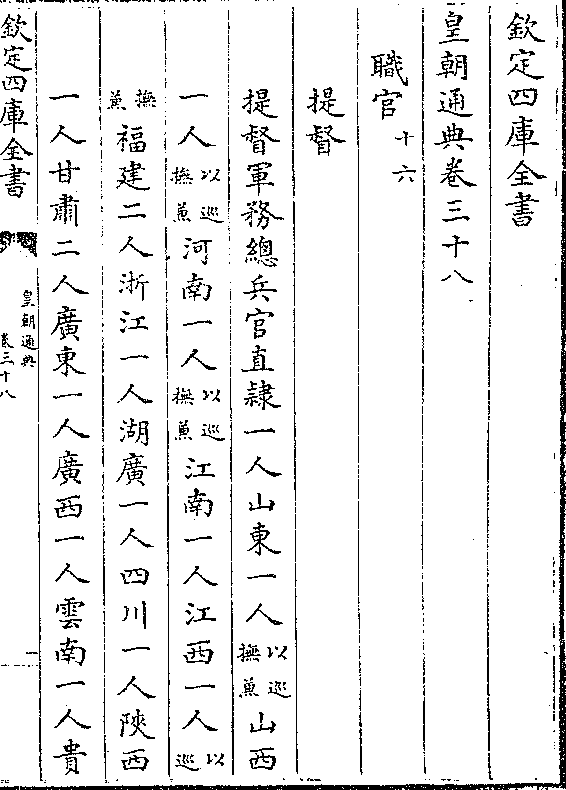 欽定四庫全書
皇朝通典卷三十八
職官十六
提督
提督軍務總兵官直隸一人山東一人以巡撫兼山西
一人以巡撫兼河南一人以巡撫兼江南一人江西一人以巡
撫兼福建二人浙江一人湖廣一人四川一人陜西
一人甘肅二人廣東一人廣西一人雲南一人貴
欽定四庫全書
皇朝通典
卷三十八
一